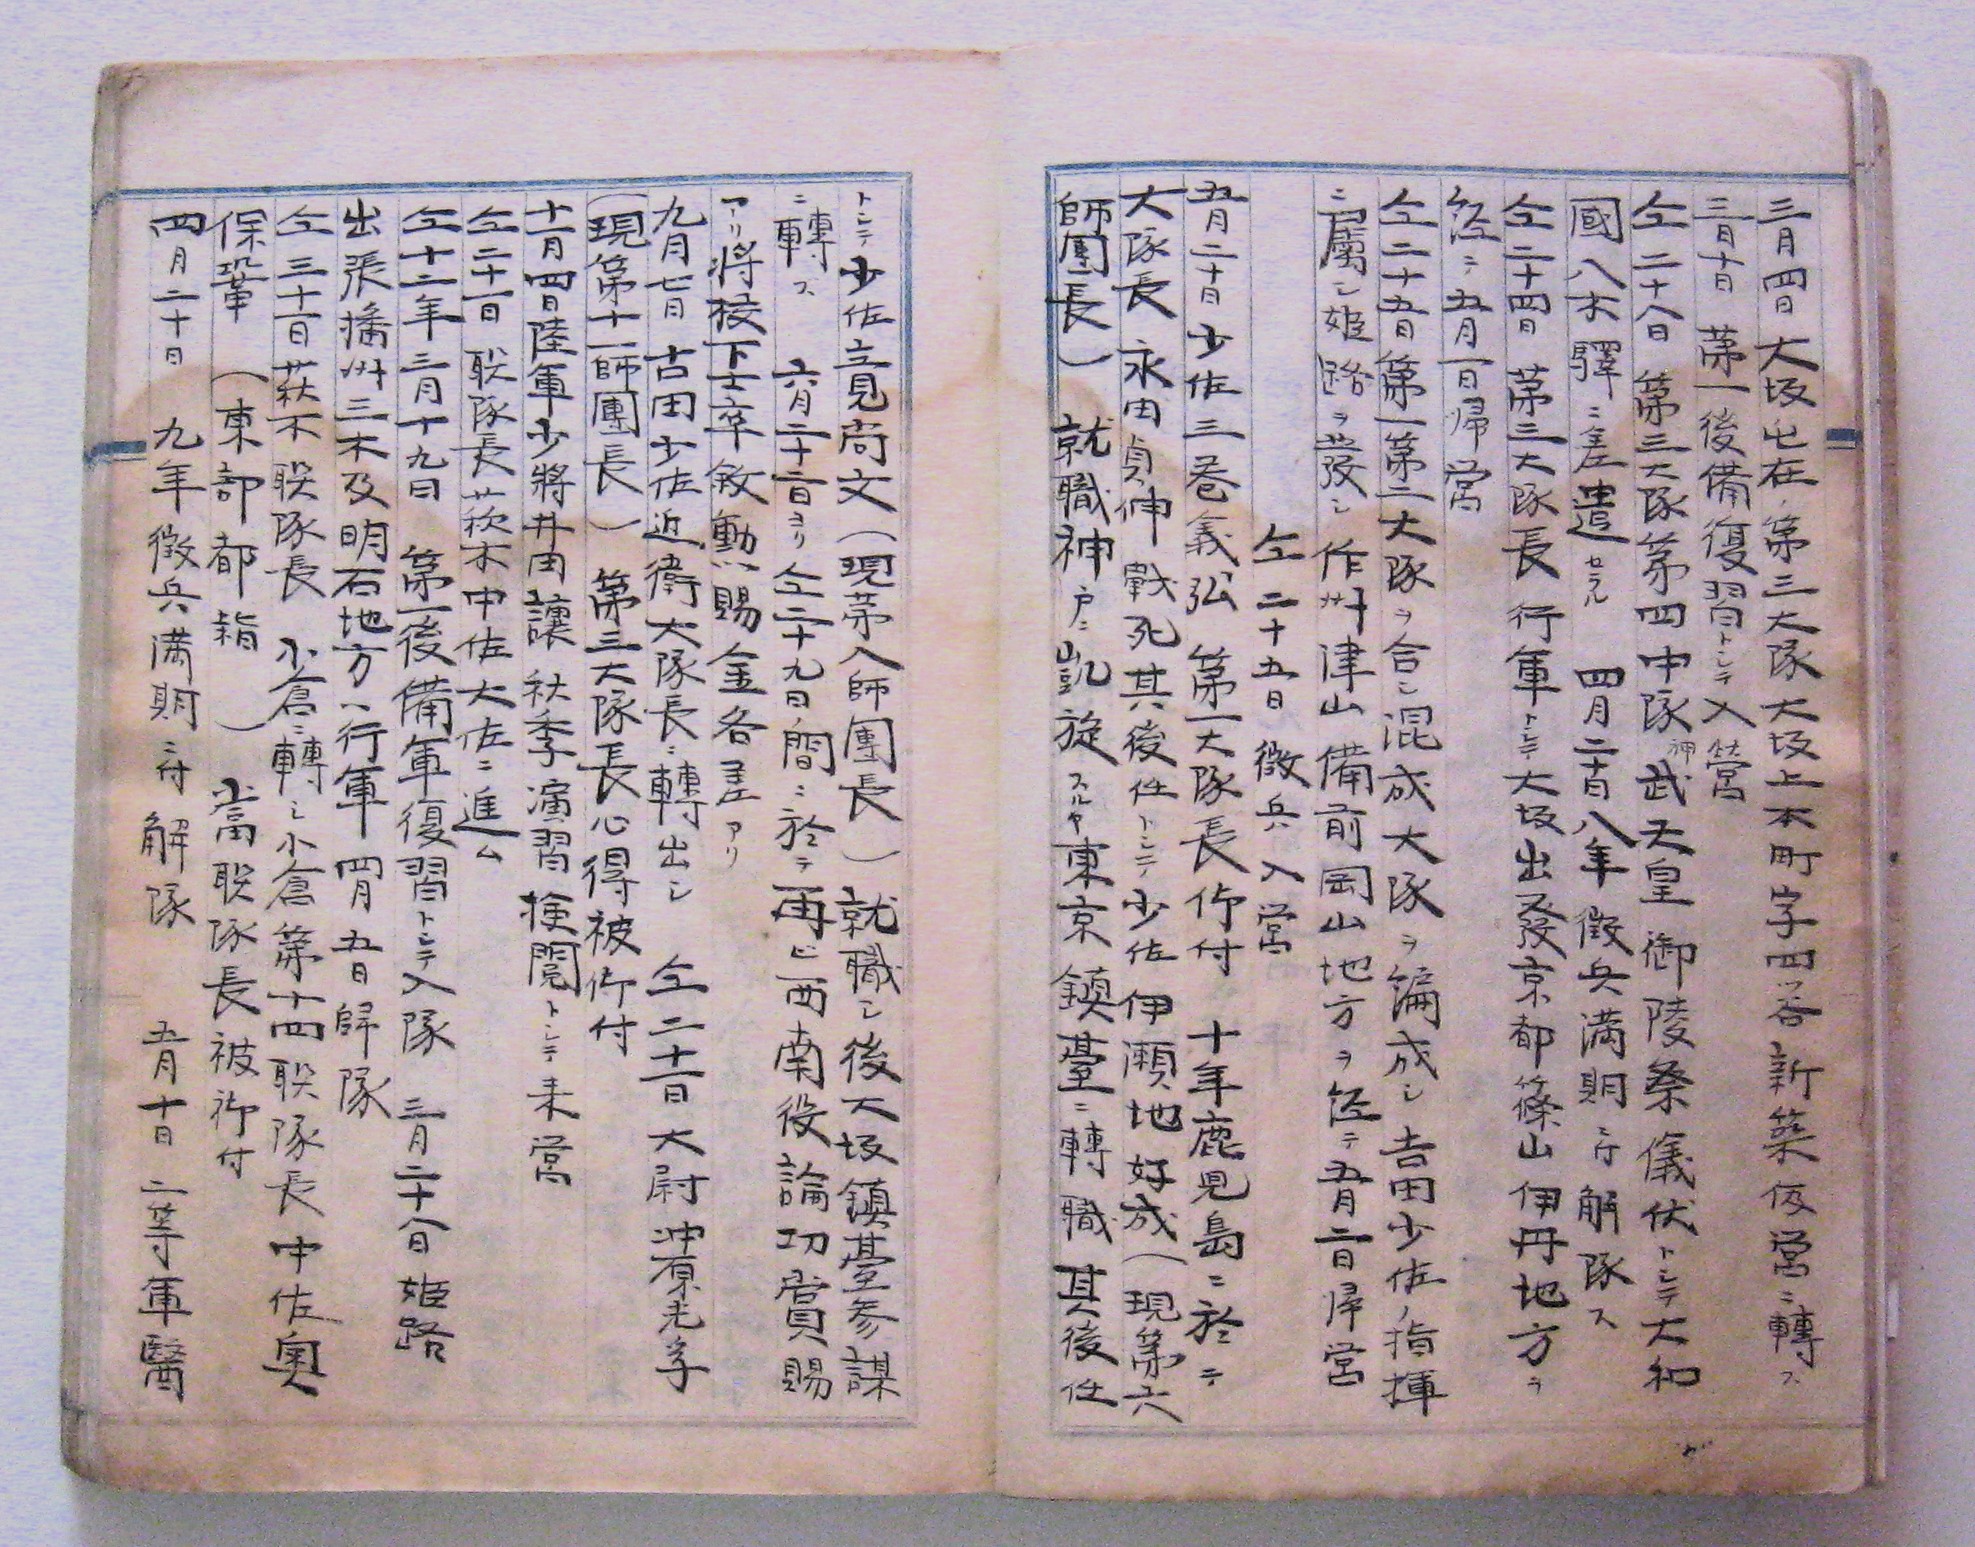 三月四日大坂屯在ノ第三大隊大坂上本町字四ツ谷新築仮営ニ轉ス
三月十日 第一後備復習トシテ入営
仝二十八日 第三大隊第四中隊神武天皇御陵祭儀仗トシテ大和
國八木驛ニ差遣セラル 四月二十日八年徴兵満期ニ付解隊ス
仝二十四日 第三大隊長行軍トシテ大坂出發京都篠山伊丹地方ヲ
経テ五月一日帰営
仝二十五日第一第二大隊ヲ合シ混成大隊ヲ編成シ吉田少佐ノ指揮
ニ屬シ姫路ヲ發シ作州津山備前岡山地方ヲ経テ五月二日帰営
仝二十五日 徴兵入営
五月二十日少佐三巻義弘第一大隊長仰付 十年鹿児島ニ於テ
大隊長永田貞伸戰死其後任トシテ少佐伊瀬地好成(現第六
師團長)就職神戸ニ凱旋スルヤ東京鎮臺ニ轉職其後任
トシテ少佐立見尚文(現第八師團長)就職シ後大坂鎮臺参謀
ニ轉ス 六月二十三日ヨリ仝二十九日間ニ於テ再ビ西南役論功賞賜
アリ將校下士卒敘勳賜金各差アリ
九月七日古田少佐近衛大隊長ニ轉出シ 仝二十一日大尉沖原光孚
(現第十一師團長)第三大隊長心得被仰付
十一月四日陸軍少將井田讓秋季演習検閲トシテ来営
仝二十一日聯隊長茨木中佐大佐ニ進ム
仝十二年三月十九日 第一後備軍復習トシテ入隊 三月二十八日姫路
出張播州三木及明石地方ヘ行軍 四月五日歸隊
仝三十一日茨木聯隊長 小倉ニ轉シ小倉第十四聯隊長中佐奥
保鞏(東部都督)當聯隊長被御付
四月二十日 九年徴兵満期ニ付解隊 五月十日二等軍醫